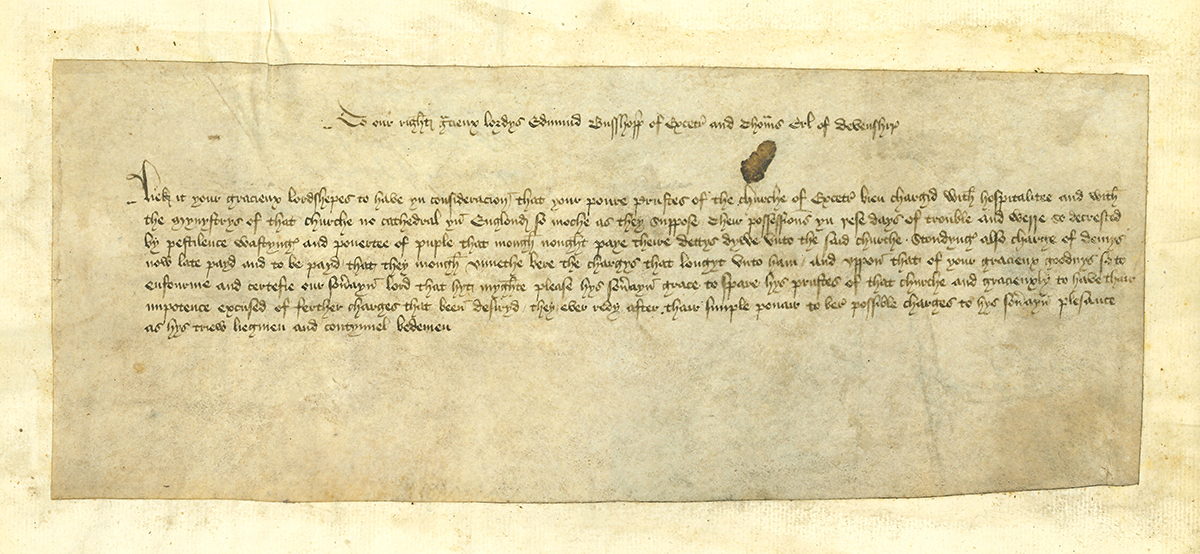 To our right gracieux lordys Edmund Busshopp of Excetr and Thoms Erl of Devenship
Liek it your gracieux lordshepes to have yn consideracion that your povre prustes of the churche of Excetr bien chargid with hospitalitee and with
the mynystrys of that churche no cathedral yn Englond so moche as they suppose their possessions yn yese days of trouble and werre so decresed
by pestilence wastyng and povertee of puple that mough nought paye theire dettys dywe unto the said churche . Stondyng also charge of demys
now late payd and to be payd that they mough unnethe bere the chargys that longyt unto ham / and uppon that of your gracieux goodnys so to
enfourme and certefie our sovrayn lord that hyt myghte please hys sovrayn grace to spare hys prustes of that churche and gracieuxly to have thair
impotence excused of ferther chargys that been desiryd they ever redy after thair simple power to ber possible charges to hys sovrayn plesance
as hys triew liegmen and contynuel bedemen